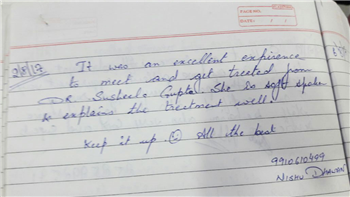 It was an excellent expirence
to meet and get treated from
DR. Susheela Gupta. She is soft spoken
& explains the treatment well.
Keep it up ☺ All the best
9910610499
NISHU DHAWAN